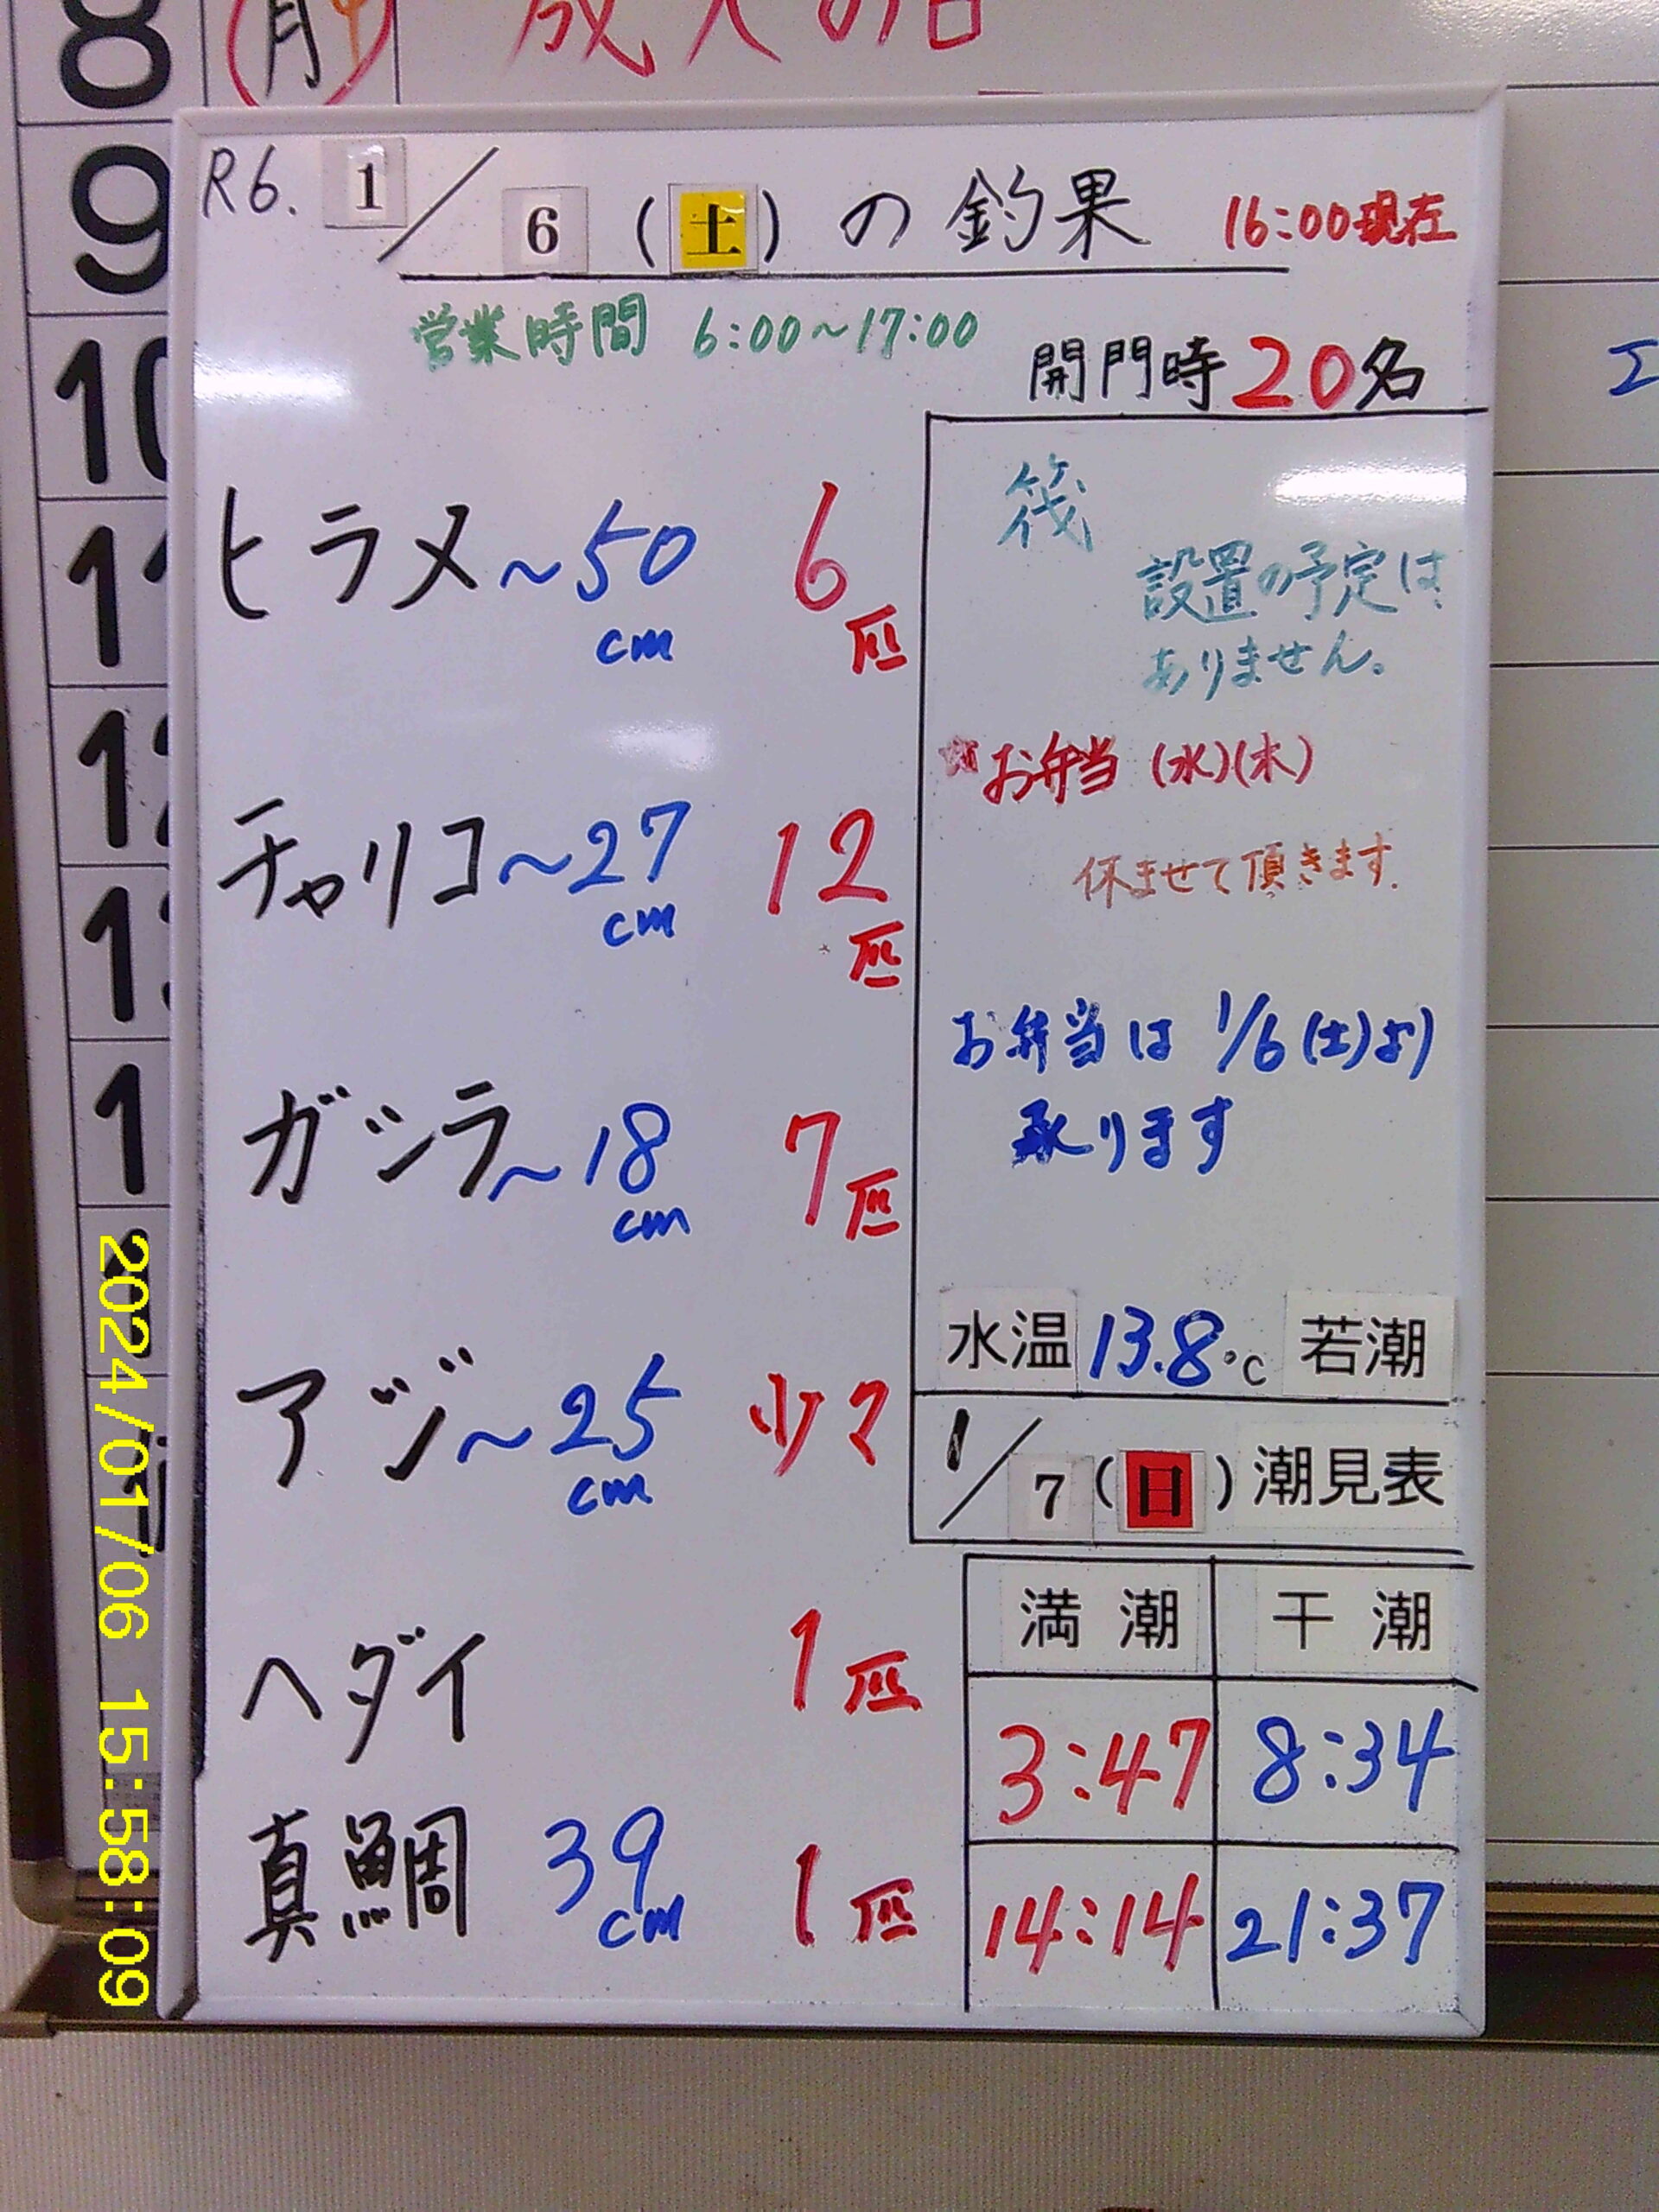 8 成人の日
9
10
11
R6. 1/6(土)の釣果 16:00現在
営業時間 6:00~17:00
開門時20名
ヒラメ~50cm 6匹
チャリコ~27cm 12匹
ガシラ~18cm 7匹
アジ~25cm 少々
ヘダイ 1匹
真鯛 39cm 1匹
筏
設置の予定は
ありません。
☆お弁当(水)(木)
休ませて頂きます.
お弁当は 1/6(土)より
承ります
水温 13.8℃ 若潮
1/7(日)潮見表
満潮 干潮
3:47 8:34
14:14 21:37
2024/01/06 15:58:09